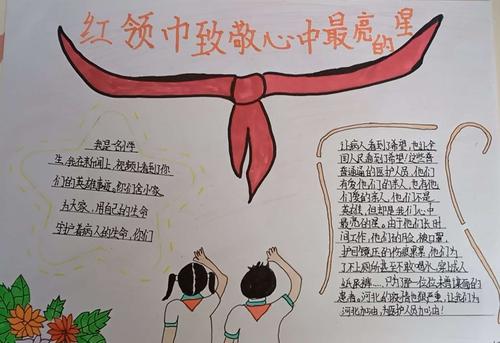 红领巾致敬心中最亮的星
我是一名小学
生,我在新闻上,视频上看到了你
们的英雄事迹。你们舍小家
为大家,用自己的生命
守护着病人的生命,你们
让病人看到了希望,也让全
国人民看到了希望!这些普
普通通的医护人员,他们
有爱他们的亲人,也有他
们爱的亲人,他们不是
英雄,但却是我们心中
最亮的星。由于他们长时
间工作,他们的脸,被口罩、
护目镜压的伤痕累累,他们为
了不上厕所甚至不敢喝水,穿上成人
纸尿裤……只为了那一位位未曾谋面的
患者。河北的疫情也很严重,让我们为
河北加油,为医护人员加油!